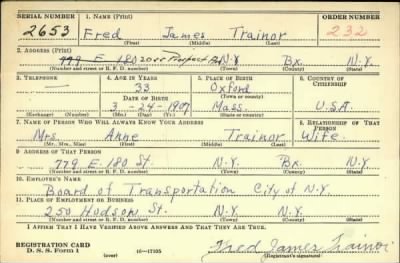 SERIAL NUMBER 1. NAME (Print) ORDER NUMBER
2653 Fred James Trainor 232
(First) (Middle) (Last)
2. ADDRESS (Print)
779 E. 180 2055 Prospect Av N.Y. Bx. N.Y.
(Number and street or R. F. D. number) (Town) (County) (State)
3. TELEPHONE 4. AGE IN YEARS 5. PLACE OF BIRTH 6. COUNTRY OF CITIZENSHIP
— 33 Oxford
DATE OF BIRTH (Town or county)
— 3-24-1907 Mass. U.S.A.
(Exchange) (Number) (Mo.) (Day) (Yr.) (State or country)
7. NAME OF PERSON WHO WILL ALWAYS KNOW YOUR ADDRESS 8. RELATIONSHIP OF THAT PERSON
Mrs. Anne Trainor Wife
(Mr., Mrs., Miss) (First) (Middle) (Last)
9. ADDRESS OF THAT PERSON
779 E. 180 St. N.Y. Bx. N.Y.
(Number and street or R. F. D. number) (Town) (County) (State)
10. EMPLOYER'S NAME
Board of Transportation City of N.Y.
11. PLACE OF EMPLOYMENT OR BUSINESS
250 Hudson St. N.Y. N.Y.
(Number and street or R. F. D. number) (Town) (County) (State)
I AFFIRM THAT I HAVE VERIFIED ABOVE ANSWERS AND THAT THEY ARE TRUE.
REGISTRATION CARD
D. S. S. Form 1 (over) 16—17105 Fred James Trainor
(Registrant's signature)